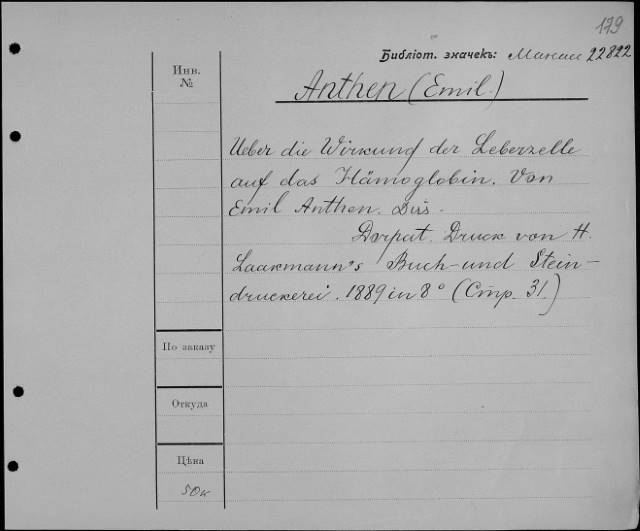 179
Библіот. значекъ: 22822
Инв.
№
Anthen (Emil.)
Ueber die Wirkung der Leberzelle
auf das Hämoglobin. Von
Emil Anthen. Dis.
Dorpat. Druck von H.
Laakmann's Buch- und Stein-
druckerei. 1889 in 8° (Стр. 31.)
По заказу
Откуда
Цѣна
50к